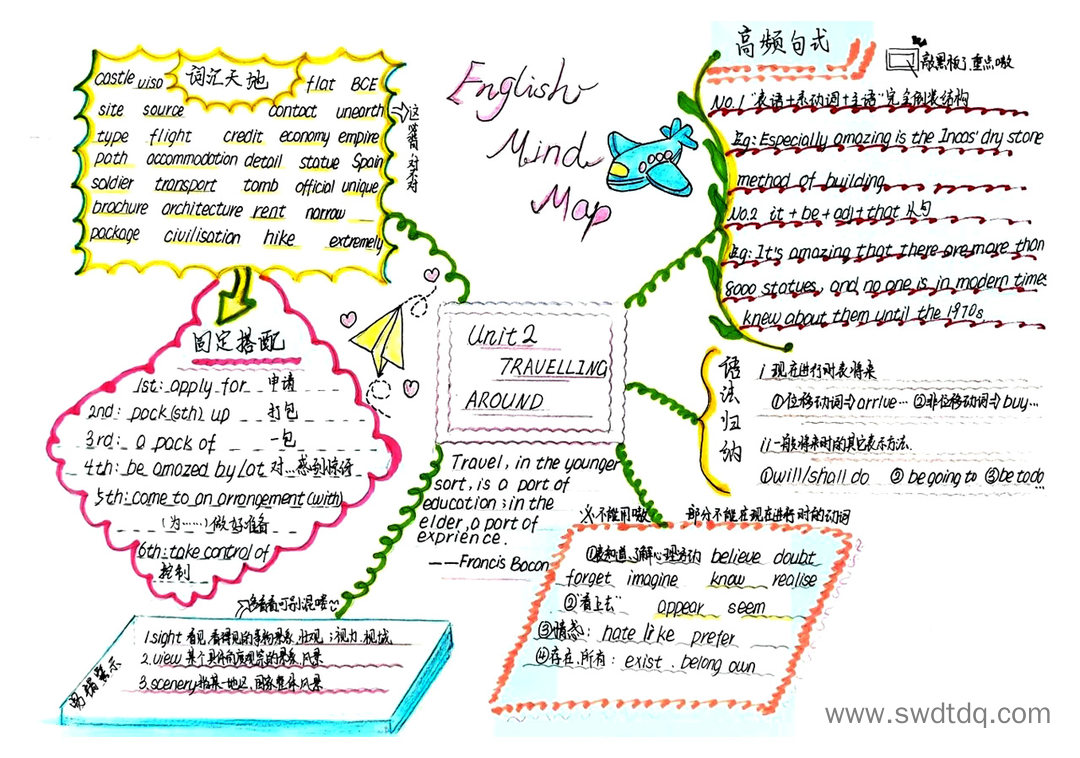 English
Mind
Map
词汇天地
castle visa flat BCE
site source contact unearth
type flight credit economy empire
path accommodation detail statue Spain
soldier transport tomb official unique
brochure architecture rent narrow
package civilisation hike extremely
固定搭配
1st: apply for 申请
2nd: pack (sth) up 打包
3rd: a pack of 一包
4th: be amazed by/at 对…感到惊讶
5th: come to an arrangement (with)
(为……)做好准备
6th: take control of
控制
Unit 2
TRAVELLING
AROUND
Travel, in the younger
sort, is a part of
education; in the
elder, a part of
exprience.
——Francis Bacon
高频句式
敲黑板了重点嗷
No.1 "表语+系动词+主语"完全倒装结构
Eg: Especially amazing is the Incas' dry stone
method of building
No.2 it + be + adj + that 从句
Eg: It's amazing that there are more than
8000 statues, and no one is in modern time
knew about them until the 1970s
语法归纳
i 现在进行时表将来
①位移动词⇒arrive… ②非位移动词⇒buy…
ii 一般将来时的其它表示方法
①will/shall do ② be going to ③be to do
※不能用嗷 部分不能在现在进行时的动词
believe doubt
forget imagine know realise
②"看上去" appear seem
③情感: hate like prefer
④存在、所有: exist、belong own
易错警示
1.sight
2.view 某个具体角度观见的景象、风景
3.scenery 指某一地区、国家整体风景
www.swdtdq.com